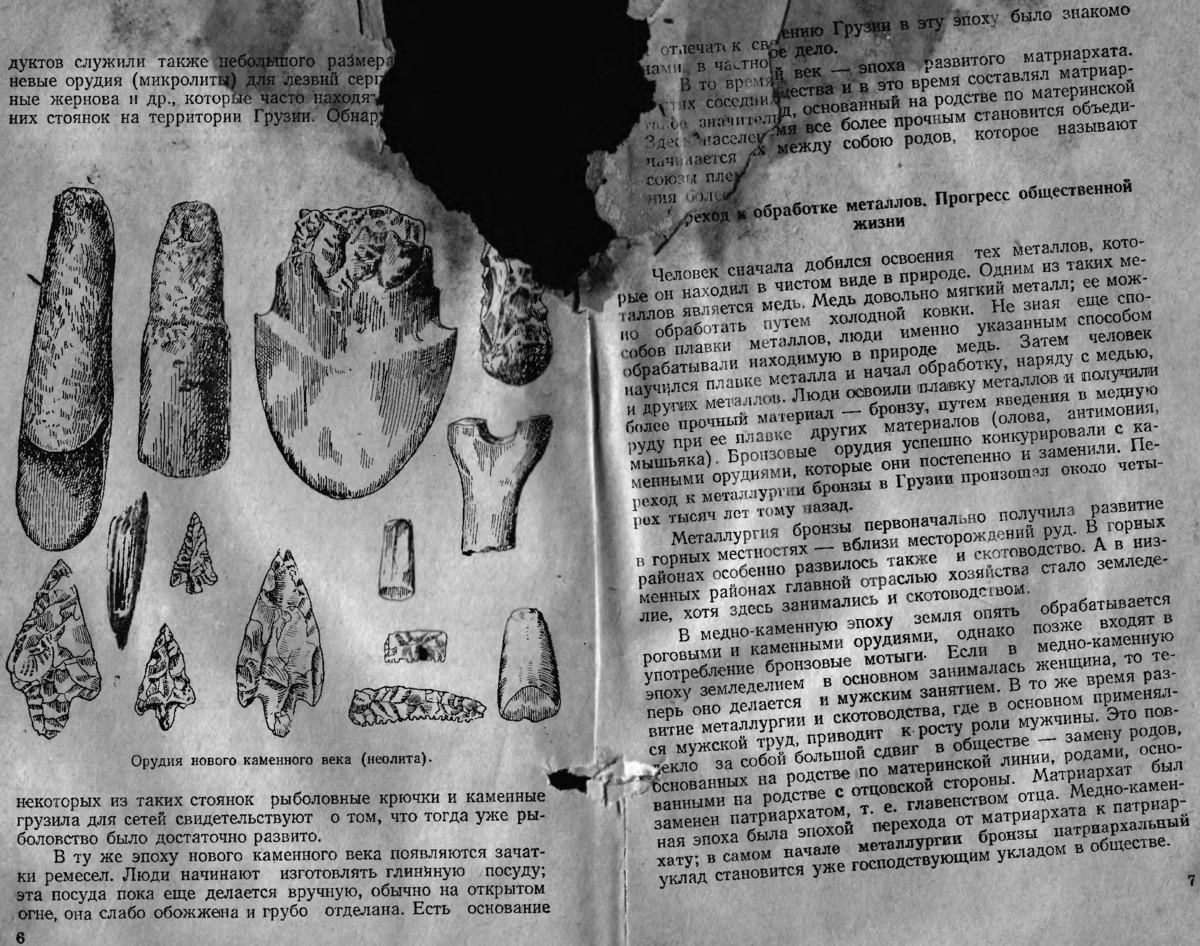 дуктов служили также небольшого размера
невые орудия (микролиты) для лезвий серп
ные жернова и др., которые часто находят
них стоянок на территории Грузии. Обнар
Орудия нового каменного века (неолита).
некоторых из таких стоянок рыболовные крючки и каменные
грузила для сетей свидетельствуют о том, что тогда уже ры-
боловство было достаточно развито.
В ту же эпоху нового каменного века появляются зачат-
ки ремесел. Люди начинают изготовлять глиняную посуду;
эта посуда пока еще делается вручную, обычно на открытом
огне, она слабо обожжена и грубо отделана. Есть основание
6
ению Грузии в эту эпоху было знакомо
ое дело.
й век — эпоха развитого матриархата.
щества и в это время составлял матриар-
д, основанный на родстве по материнской
мя все более прочным становится объеди-
их между собою родов, которое называют
реход к обработке металлов. Прогресс общественной
жизни
Человек сначала добился освоения тех металлов, кото-
рые он находил в чистом виде в природе. Одним из таких ме-
таллов является медь. Медь довольно мягкий металл; ее мож-
но обработать путем холодной ковки. Не зная еще спо-
собов плавки металлов, люди именно указанным способом
обрабатывали находимую в природе медь. Затем человек
научился плавке металла и начал обработку, наряду с медью,
и других металлов. Люди освоили плавку металлов и получили
более прочный материал — бронзу, путем введения в медную
руду при ее плавке других материалов (олова, антимония,
мышьяка). Бронзовые орудия успешно конкурировали с ка-
менными орудиями, которые они постепенно и заменили. Пе-
реход к металлургии бронзы в Грузии произошел около четы-
рох тысяч лет тому назад.
Металлургия бронзы первоначально получила развитие
в горных местностях — вблизи месторождений руд. В горных
районах особенно развилось также и скотоводство. А в низ-
менных районах главной отраслью хозяйства стало земледе-
лие, хотя здесь занимались и скотоводством.
В медно-каменную эпоху земля опять обрабатывается
роговыми и каменными орудиями, однако позже входят в
употребление бронзовые мотыги. Если в медно-каменную
эпоху земледелием в основном занималась женщина, то те-
перь оно делается и мужским занятием. В то же время раз-
витие металлургии и скотоводства, где в основном применял-
ся мужской труд, приводит к росту роли мужчины. Это пов-
лекло за собой большой сдвиг в обществе — замену родов,
основанных на родстве по материнской линии, родами, осно-
ванными на родстве с отцовской стороны. Матриархат был
заменен патриархатом, т. е. главенством отца. Медно-камен-
ная эпоха была эпохой перехода от матриархата к патриар-
хату; в самом начале металлургии бронзы патриархальный
уклад становится уже господствующим укладом в обществе.
7